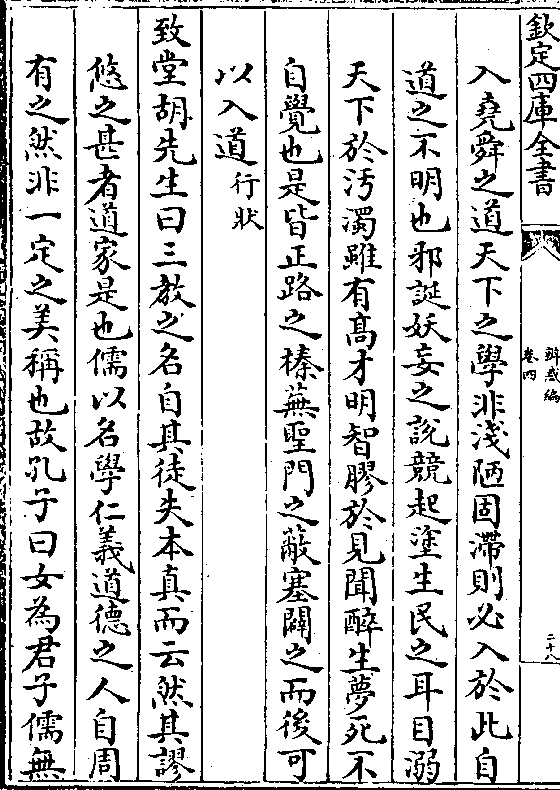 欽定四庫全書
辯惑編
卷四
二十八
入堯舜之道天下之學非淺陋固滯則必入於此自
道之不明也邪誕妖妄之說競起塗生民之耳目溺
天下於汚濁雖有髙才明智膠於見聞醉生夢死不
自覺也是皆正路之榛蕪聖門之蔽塞闢之而後可
以入道行狀
致堂胡先生曰三教之名自其徒失本真而云然其謬
悠之甚者道家是也儒以名學仁義道德之人自周
有之然非一定之美稱也故孔子曰女為君子儒無